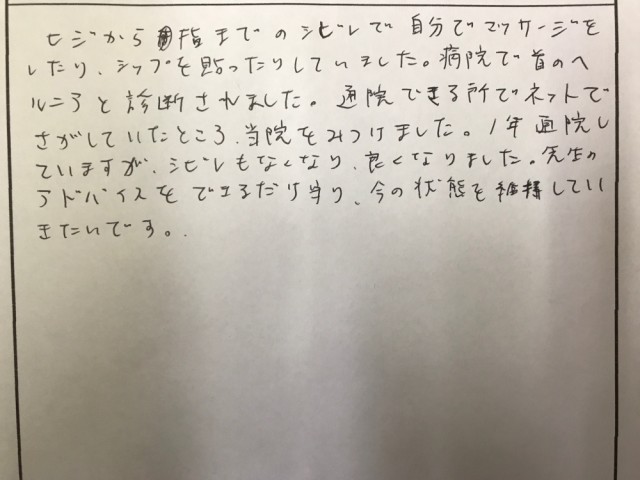 ヒジから指までのシビレで自分でマッサージを
したり、シップを貼ったりしていました。病院で首のヘ
ルニアと診断されました。通院できる所でネットで
さがしていたところ、当院をみつけました。1年通院し
ていますが、シビレもなくなり、良くなりました。先生の
アドバイスをできるだけ守り、今の状態を維持してい
きたいです。